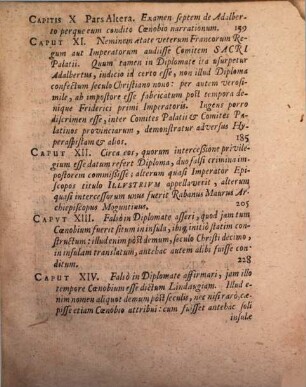 CAPITIS X Pars Altera. Examen septem de Adalber-
to perque eum condito Cœnobio narrationum. 159
CAPUT XI. Neminem ætate veterum Francorum Regum
aut Imperatorum audiisse Comitem SACRI
Palatii. Quum tamen in Diplomate ita usurpetur
Adalbertus, indicio id certo esse, non illud Diploma
confectum seculo Christiano nono: per autem verisimile,
ab impostore esse fabricatum post tempora denique
Friderici primi Imperatoris. Ingens porro
discrimen esse, inter Comites Palatii & Comites Palatinos
provinciarum, demonstratur adversus Hyperaspistam
& alios. 185
CAPUT XII. Circa eos, quorum intercessione privilegium
esse datum refert Diploma, duo falsi crimina impostorem
commisisse: alterum quasi Imperator Episcopos
titulo ILLUSTRIUM appellaverit, alterum
quasi intercessorum unus fuerit Rabanus Maurus Archiepiscopus
Moguntinus. 205
CAPUT XIII. Falsò in Diplomate asseri, quod jam tum
Cœnobium fuerit situm in insula, ibi g initiò statim constructum:
illud enim pòst demum, seculo Christi decimo,
in insulam translatum, antehac autem alibi fuisse conditum.
228
CAPUT XIV. Falsò in Diplomate affirmari, jam illo
tempore Cœnobium esse dictum Lindaugiam. Illud enim
nomen aliquot demum pòst seculis, nec nisi raró, cæpisse
etiam Cœnobio attribui: cum fuisset antehac soli
insulæ